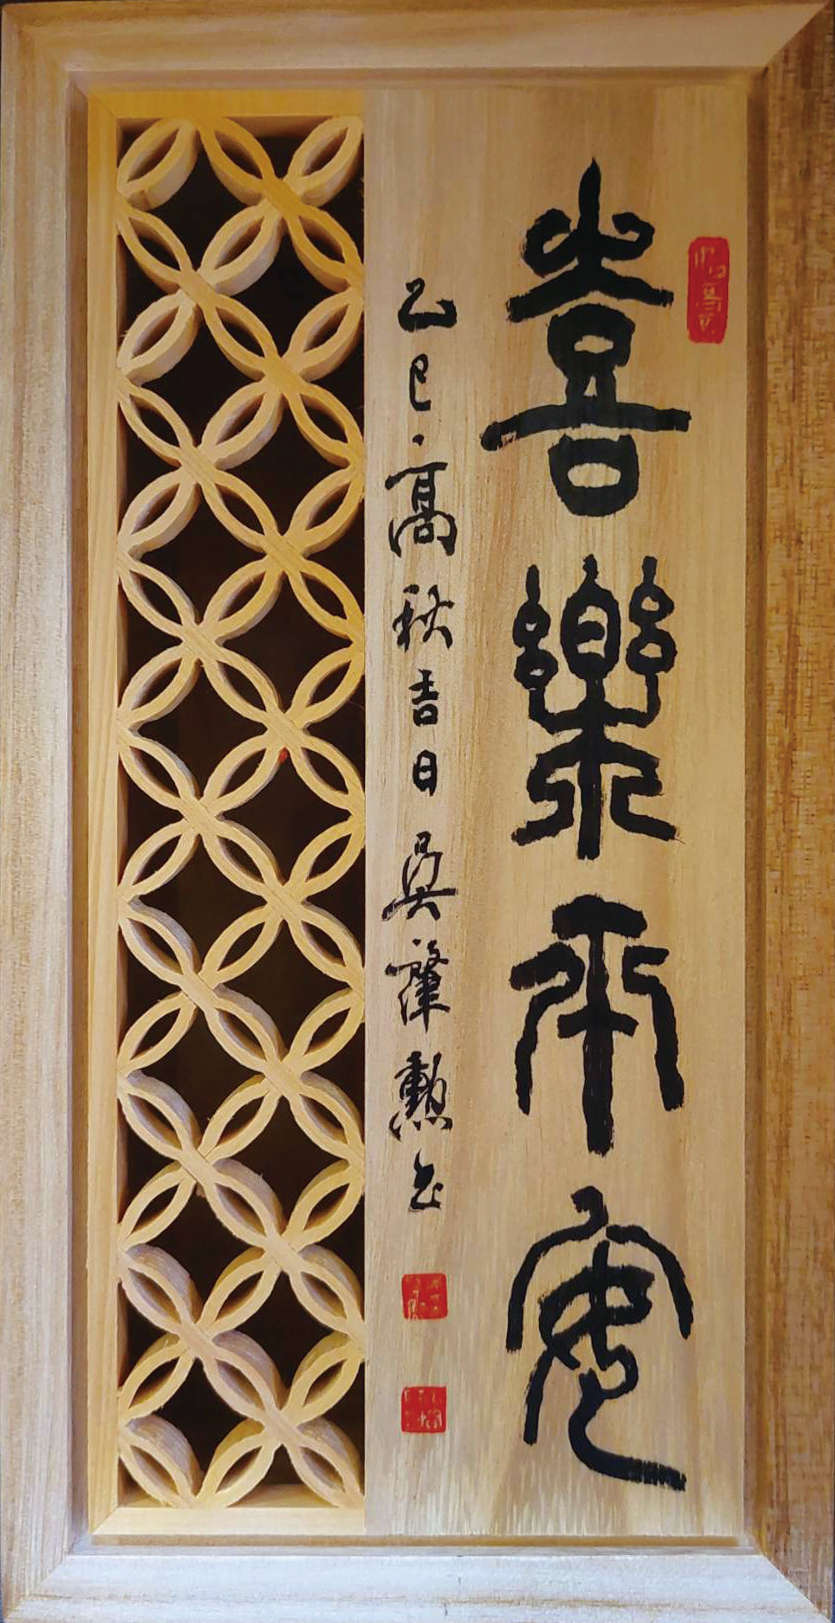 喜樂平安
乙巳高秋吉日吳肇勳書